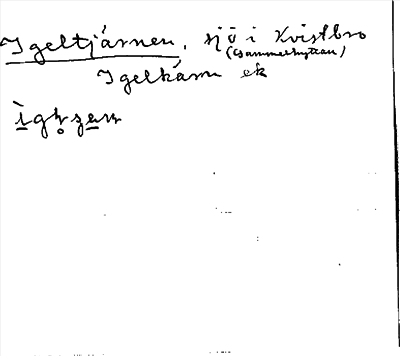 Igeltjärnen, sjö i Kvistbro
(Gammelhyttan)
Igelkärn ek